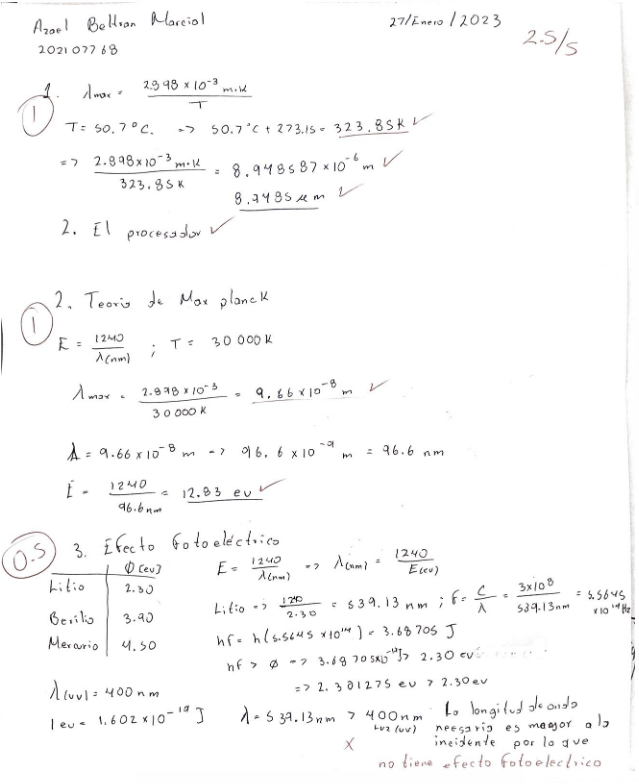 Azael Beltran Marcial
27/Enero/2023
202107768
2.5/5
1. λmax = 2.898 x 10⁻³ m·K / T
1
T = 50.7°C. => 50.7°C + 273.15 = 323.85K ✓
=> 2.898x10⁻³ m·K / 323.85 K = 8.948587 x10⁻⁶ m ✓
8.9485 μm ✓
2. El procesador ✓
2. Teoria de Max planck
1
E = 1240 / λ(nm) ; T = 30 000 K
λmax = 2.898 x 10⁻³ / 30 000 K = 9.66 x 10⁻⁸ m ✓
λ = 9.66 x 10⁻⁸ m => 96.6 x 10⁻⁹ m = 96.6 nm
E = 1240 / 96.6 nm = 12.83 eV ✓
0.5
3. Efecto fotoeléctrico
Φ (eV)
Litio 2.30
Berilio 3.90
Mercurio 4.50
λ(uv) = 400 nm
1 eV = 1.602 x 10⁻¹⁹ J
E = 1240 / λ(nm) => λ(nm) = 1240 / E(eV)
Litio => 1240 / 2.30 = 539.13 nm ; f = c / λ = 3x10⁸ / 539.13 nm = 5.5645 x10¹⁴ Hz
hf = h(5.5645 x10¹⁴) = 3.68705 J
hf > Φ => 3.68705x10⁻¹⁹J > 2.30 eV
=> 2.301275 eV > 2.30 eV
λ = 539.13 nm > 400 nm
Luz (uv)
La longitud de onda
necesaria es mayor a la
incidente por lo que
X
no tiene efecto fotoelectrico